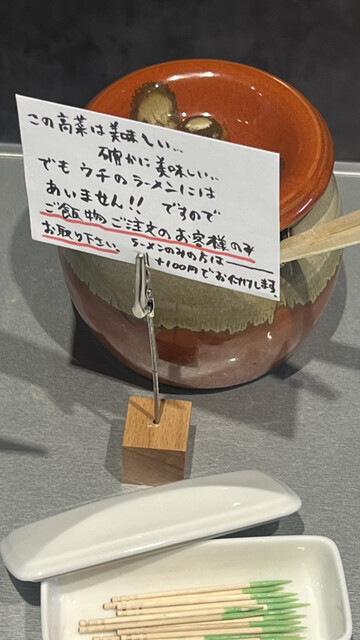 この高菜は美味しい…
確かに美味しい…
でもウチのラーメンには
あいません!! ですので
ご飯物ご注文のお客様のみ
お取り下さい。ラーメンのみの方は
+100円でお付けします。